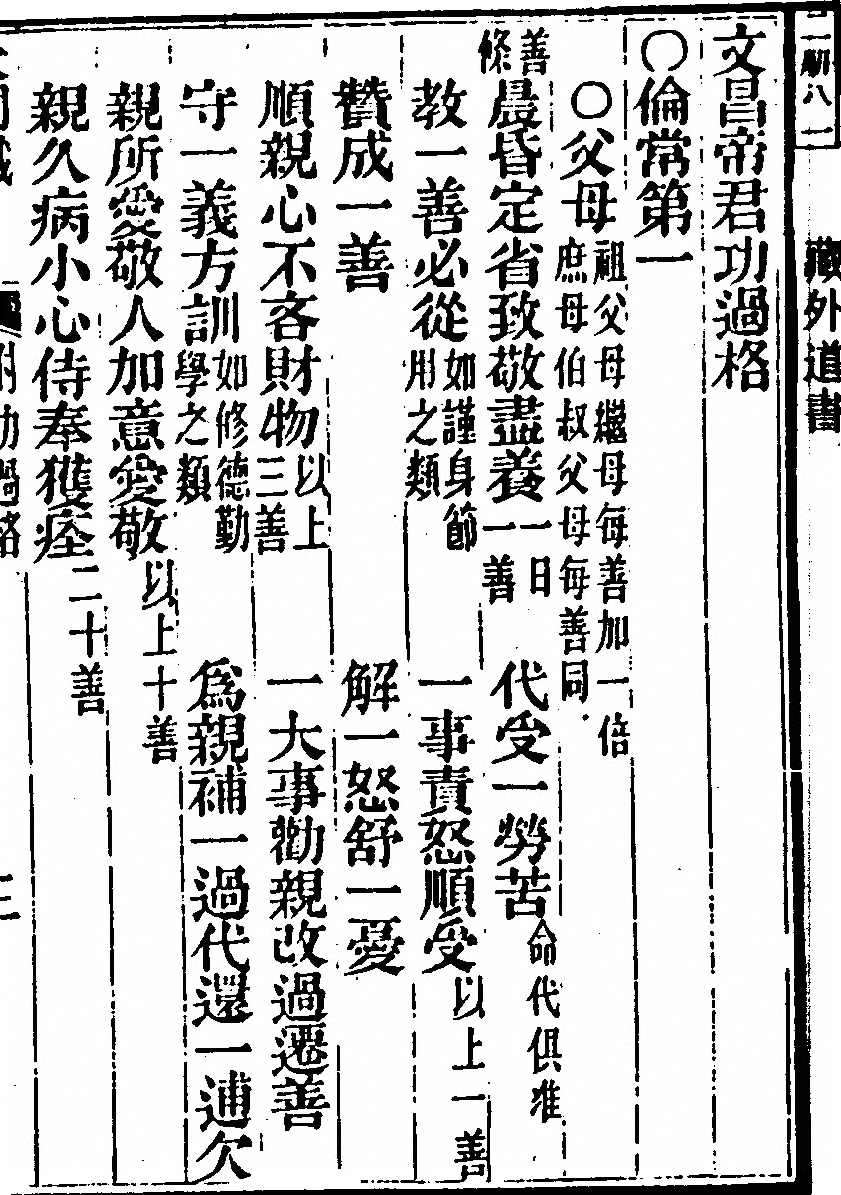 藏外道書
文昌帝君功過格
○倫常第一
○父母祖父母繼母每善加一倍
庶母伯叔父母每善同
善條
晨昏定省致敬盡養一日一善 代受一勞苦命代俱准
教一善必從如謹身節用之類 一事責怒順受以上一善
贊成一善 解一怒舒一憂
順親心不吝財物以上三善 一大事勸親改過遷善
守一義方訓如修德勤學之類 爲親補一過代還一逋欠
親所愛敬人加意愛敬以上十善
親久病小心侍奉獲痊二十善
附功過格
三